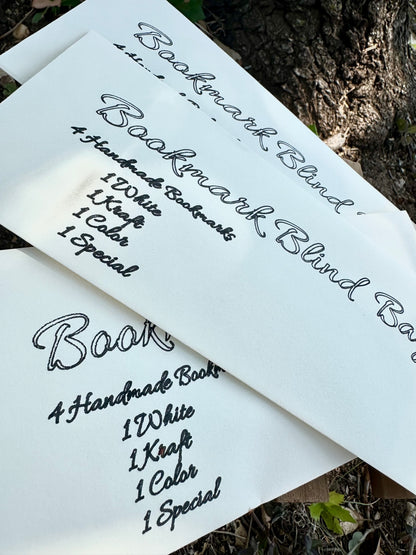 Bookmark Blind
Bookmark Blind Ba
4 Handmade Bookmarks
1 White
1 Kraft
1 Color
1 Special
Book
4 Handmade Bookm
1 White
1 Kraft
1 Color
1 Special